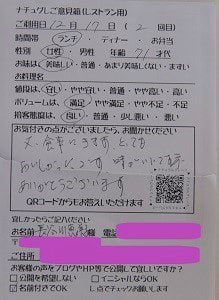 ナチュグしご意見箱(レストラン用)
ご利用日 12月 17日( 2 回目)
時間帯 ランチ・ティナー・お弁当
性別 女性・男性 年齢 71才代
お味は 美味しい・普通・あまり美味しくない・まずい
お料理名
値段は 安い・やや安い・普通・やや高い・高い
ボリュームは 満足・やや満足・やや不足・不足
接客態度は 良い・普通・少し悪い・悪い
お気付きの点がございましたら、お聞かせください
又、食事に来ます。とても
おいしかったです
ありがとうございます
QRコードからもお答えいただけます
宜しかったらご記入ください
お名前 様 電話
〒
ご住所
お客様の声をブログやHP等で公開して宜しいですか?
□ 公開を希望しない □ イニシャルならOK
名前付きでOK し点でチェックお願いします